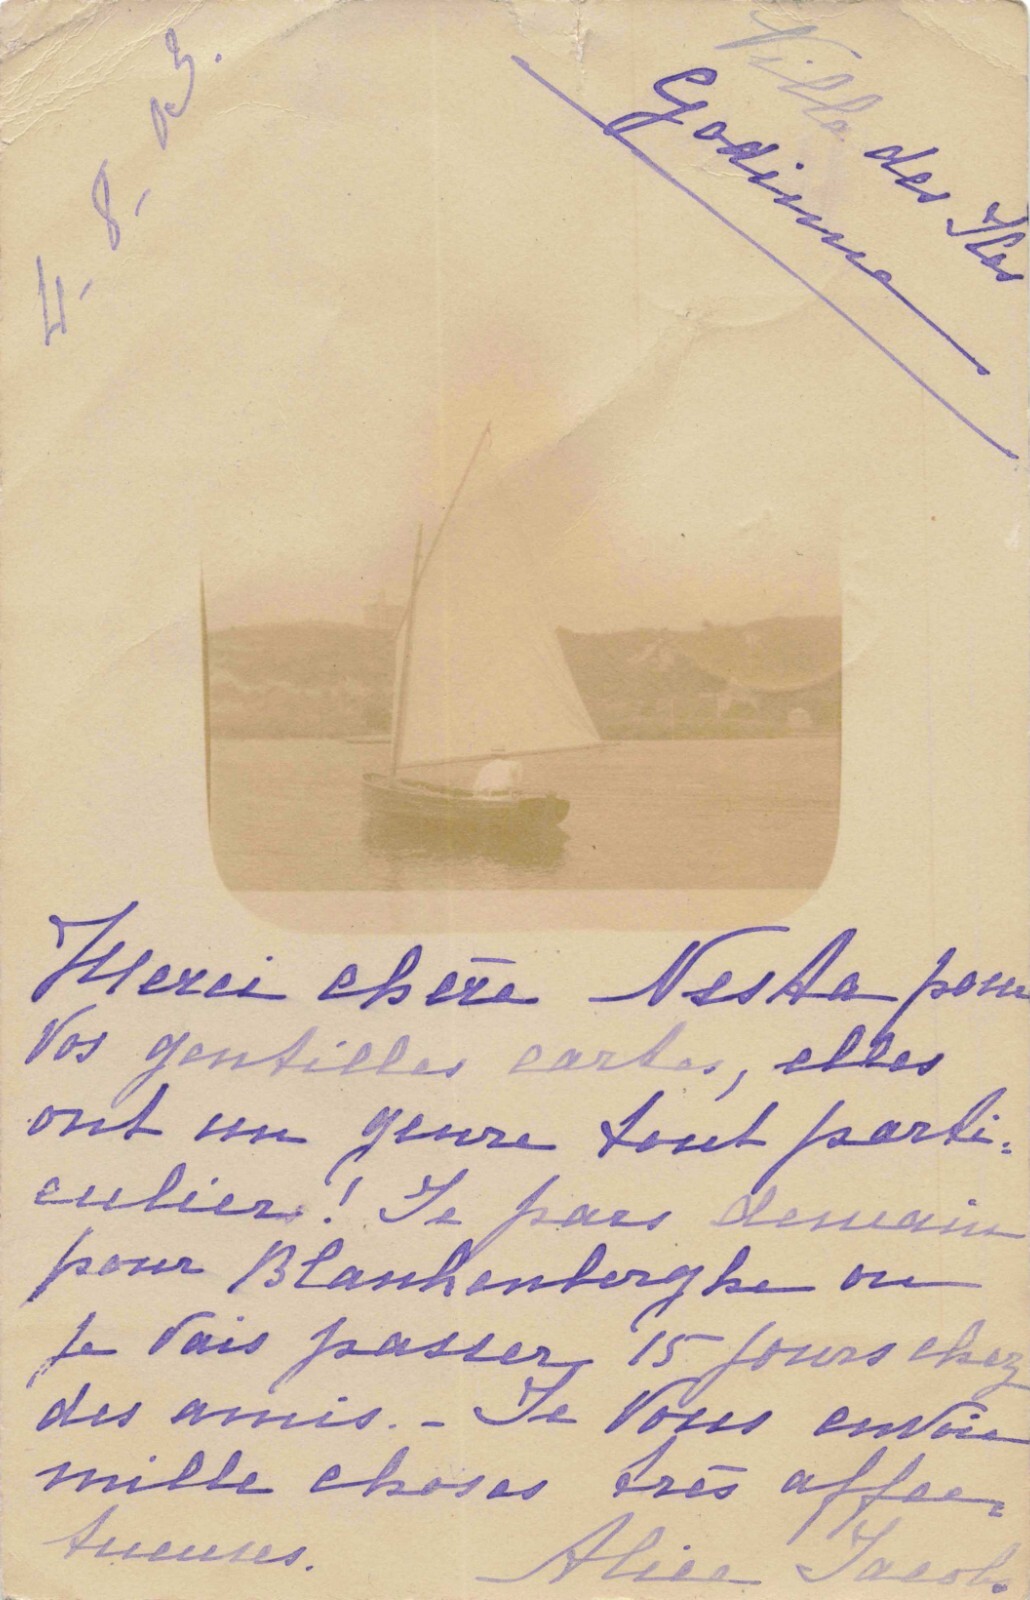 4-8-03.
Villa des Iles
Godinne
Merci chère Nesta pour
vos gentilles cartes, elles
ont un genre tout parti-
culier! Je pars demain
pour Blankenberghe ou
je vais passer 15 jours chez
des amis. - Je vous envoie
mille choses très affec-
tueuses.
Alice Jacobs.